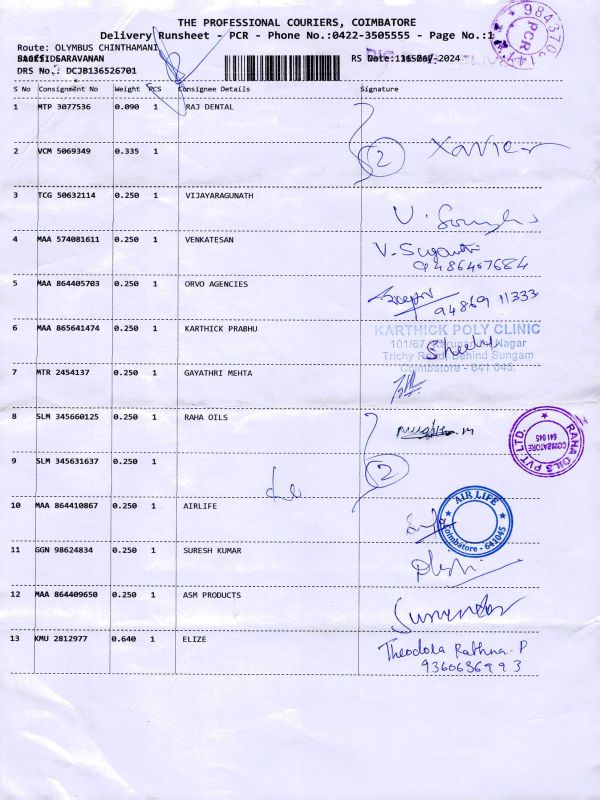 THE PROFESSIONAL COURIERS, COIMBATORE
Delivery Runsheet - PCR - Phone No.:0422-3505555 - Page No.:1
Route: OLYMPUS CHINTHAMANI
SARAVANAN
-2024
DRS No.: DCJB136526701
S No Consignment No Weight PCS Consignee Details Signature
1 MTP 3077536 0.090 1 RAJ DENTAL
2 VCM 5069349 0.335 1 2 Xavier
3 TCG 50632114 0.250 1 VIJAYARAGUNATH
4 MAA 574081611 0.250 1 VENKATESAN V. Suganthi
5 MAA 864405703 0.250 1 ORVO AGENCIES
94869 11333
6 MAA 865641474 0.250 1 KARTHICK PRABHU KARTHICK POLY CLINIC
101/67 Nagar
Trichy Road, Behind Sungam
Coimbatore - 641 045.
7 MTR 2454137 0.250 1 GAYATHRI MEHTA
8 SLM 345660125 0.250 1 RAHA OILS
RAHA OILS PVT LTD. COIMBATORE 641 045
9 SLM 345631637 0.250 1 2
10 MAA 864410867 0.250 1 AIRLIFE AIR LIFE Coimbatore - 641045
11 GGN 98624834 0.250 1 SURESH KUMAR
12 MAA 864409650 0.250 1 ASM PRODUCTS
13 KMU 2812977 0.640 1 ELIZE Theodora Rathna. P
9360636993